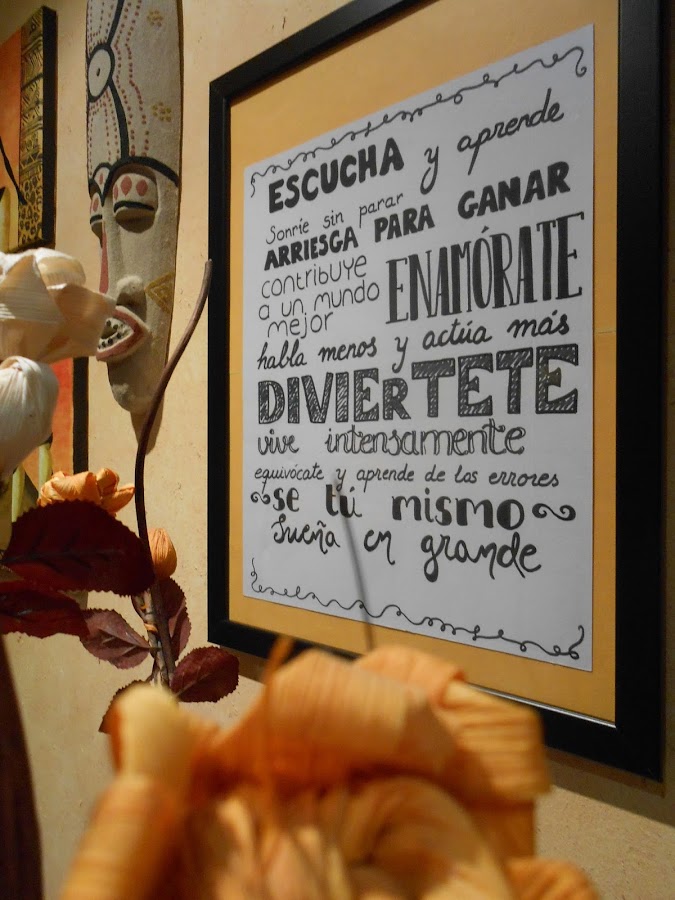 ESCUCHA y aprende
Sonríe sin parar
ARRIESGA PARA GANAR
contribuye
a un mundo
mejor
ENAMÓRATE
habla menos y actúa más
DIVIERTETE
vive intensamente
equivócate y aprende de los errores
se tú mismo
Sueña en grande